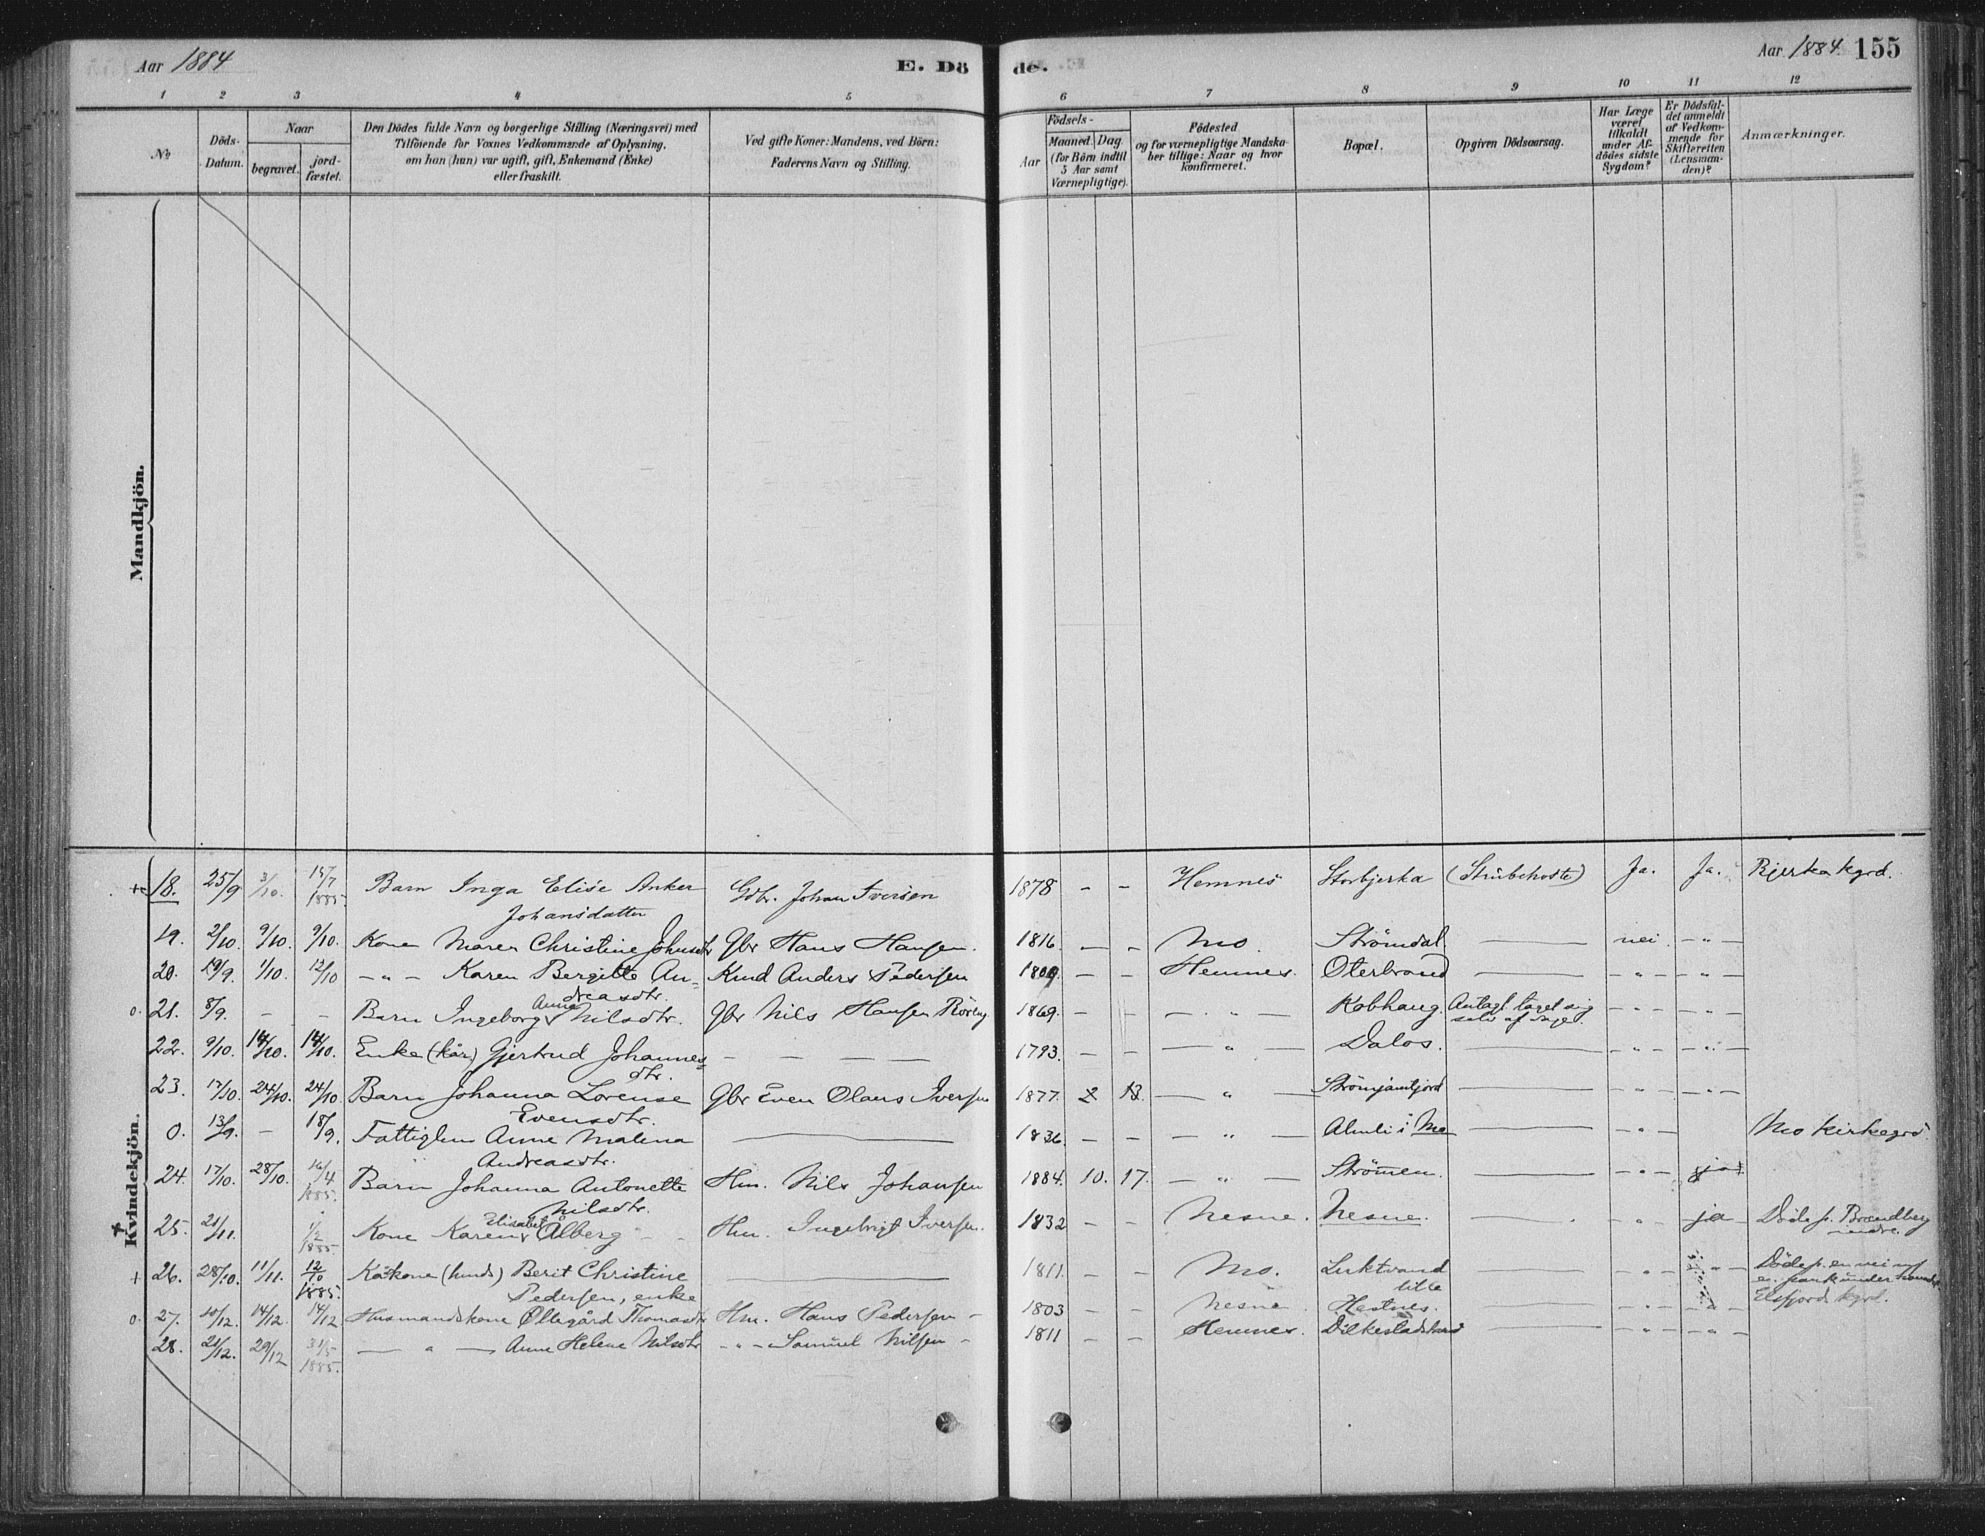 Aar 1884
E. Dö de.
Aar 1884. 155
1 2 3 4 5 6 7 8 9 10 11 12
No
Döds-Datum.
Naar
begravet.
jord-fæstet.
Den Dödes fulde Navn og borgerlige Stilling (Næringsvei) med
Tilföiende for Voxnes Vedkommende af Oplysning,
om han (hun) var ugift, gift, Enkemand (Enke)
eller fraskilt.
Ved gifte Koner: Mandens, ved Börn:
Faderens Navn og Stilling.
Födsels-
Aar
Maaned. Dag
(for Börn indtil
5 Aar samt
Værnepligtige).
Födested
og for værnepligtige Mandska-
ber tillige: Naar og hvor
konfirmeret.
Bopæl.
Opgiven Dödsaarsag.
Har Læge
været
tilkaldt
under Af-
dödes sidste
Sygdom?
Er Dödsfal-
det anmeldt
af Vedkom-
mende for
Skifteretten
(Lensman-
den)?
Anmærkninger.
Mandkjön.
Kvindekjön.
18. 25/9 3/10. 15/7 1885. Barn Inga Elise Anker Gdbr. Johan Iversen 1878 - - Hemnes Storbjerka (Strubehoste) Ja. Ja. Bjerka kgrd.
Johansdatter
19. 2/10. 9/10. 9/10. Kone Maren Christine Johnsdtr Gbr Hans Hansen. 1816. - - Mo Strömdal. - nei - " -
20. 19/9. 1/10. 12/10 - " - Karen Bergitte An= Kmd Anders Pedersen 1809. - - Hemnes. Oterbrand - - " - - " -
dreasdtr.
o. 21. 8/9. - - Barn Ingeborg Anna Nilsdtr. Gbr Nils Hansen Röring 1869. - - - " - Kobhaug. Antagl. taget sig
selv af
22. 9/10. 14/10. 14/10. Enke (kår) Gjertrud Johannes= - - - - 1793. - - - " - Dalos. - - " - - " -
dtr.
23. 17/10. 24/10. 24/10. Barn Johanna Lorense Gbr Even Olaus Iversen 1877. 2 13. - " - Strömjamtjord - - " - - " -
Evensdtr.
0. 13/9. - 18/9. Fattiglem Anne Malena - 1836. - - - " - Almli i Mo - - " - Mo kirkegrd.
Andreasdtr.
24. 17/10. 28/10. 16/4 1885. Barn Johanna Antonette Hm. Nils Johansen 1884. 10. 17. - " - Strömen. - - " - ja
Nilsdtr.
25. 21/11. 1/2 1885. Kone Karen Elisabet Ålberg - - Hm. Ingebrigt Iversen. 1832 - - Nesne. Nesne. - " - ja Döde p. Brendberg
indre.
+ 26. 28/10. 11/11. 12/10 1885. Kårkone (hunds) Berit Christine - 1811. - - Mo. Luktvand - - " - - " - Döde p. en vei
Pedersen, enke lille
Elsfjord kgrd.
o. 27. 10/12. 14/12. 14/12 Husmandskone Ollegård Thomasdtr Hm. Hans Pedersen - 1803 - - Nesne Hestnes. - - " - - " -
28. 21/12. 29/12 31/5 1885. - " - Anne Helene Nilsdtr - " - Samuel Nilsen - 1811 - - Hemnes. - - " - - " -